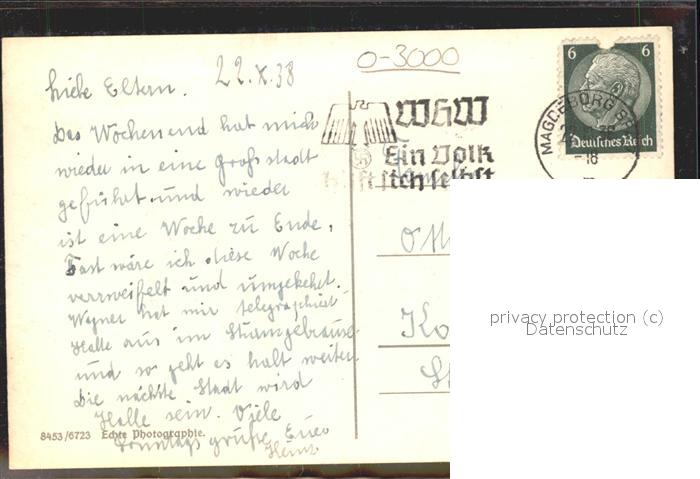 Liebe Eltern.
22.X.38
Das Wochenend hat mich
wieder in eine Großstadt
geführt und wieder
ist eine Woche zu Ende.
Fast wäre ich diese Woche
verzweifelt und umgekehrt.
Wagner hat mir telegraphiert
Halle aus im
und so geht es halt weiter.
Die nächste Stadt wird
Halle sein. Viele
Sonntagsgrüße Euer
Heinz
8453/6723 Echte Photographie.
0-3000
WHW
Ein Volk
hilft sich selbst
MAGDEBURG
-18
6 6
Deutsches Reich
Familie
Ott
Ko
St
privacy protection (c)
Datenschutz